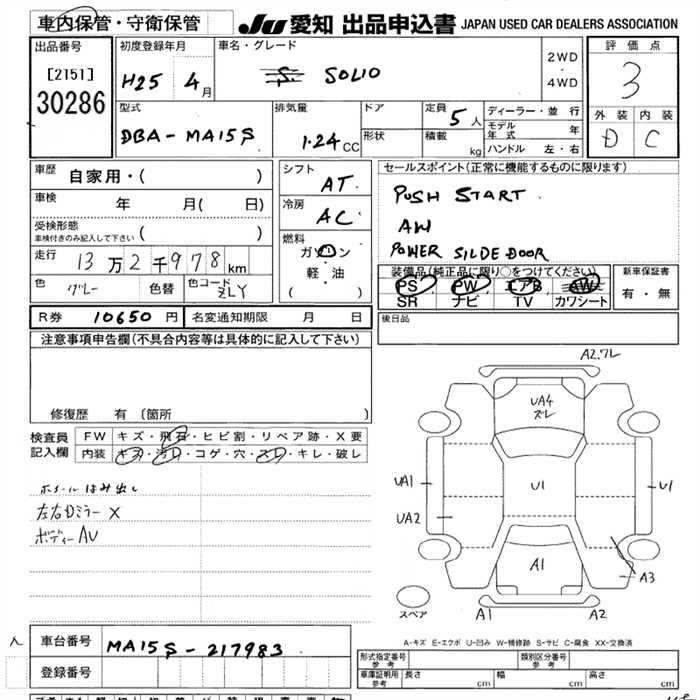 車内保管・守衛保管
JU 愛知 出品申込書 JAPAN USED CAR DEALERS ASSOCIATION
出品番号
[2151]
30286
初度登録年月
H25 4月
車名・グレード
S SOLIO
2WD
・
4WD
評価点
3
外装 内装
D C
型式
DBA-MA15S
排気量
1.24 CC
ドア
形状
定員 5人
積載 kg
ディーラー・並行
モデル年式 年
ハンドル 左・右
車歴 自家用・( )
車検 年 月( 日)
受検形態
車検付きのみ記入して下さい ( )
走行 13万2千978km
色 グレー 色替 色コード ZLY
シフト AT
冷房 AC
燃料
ガソリン
軽・油
( )
セールスポイント(正常に機能するものに限ります)
PUSH START.
AW
POWER SILDE DOOR
装備品(純正品に限り○をつけてください)
PS PW エアB AW
SR ナビ TV カワシート
新車保証書
有・無
R券 10650円 名変通知期限 月 日
後日品
注意事項申告欄(不具合内容等は具体的に記入して下さい)
修復歴 有 〔箇所 〕
検査員記入欄
FW キズ・飛石・ヒビ割・リペア跡・X要
内装 キズ・汚レ・コゲ・穴・スレ・キレ・破レ
ホイールはみ出し
左右Dミラー X
ボディーAU
A2.ワレ
UA4
ズレ
UA1
U1
U1
UA2
A1
A3
スペア
A1
A2
A-キズ E-エクボ U-凹み W-補修跡 S-サビ C-腐食 XX-交換済
人
車台番号 MA15S-217983
登録番号
形式指定番号 参考
類別区分番号 参考
車庫証明用 参考 長さ cm 幅 cm 高さ cm